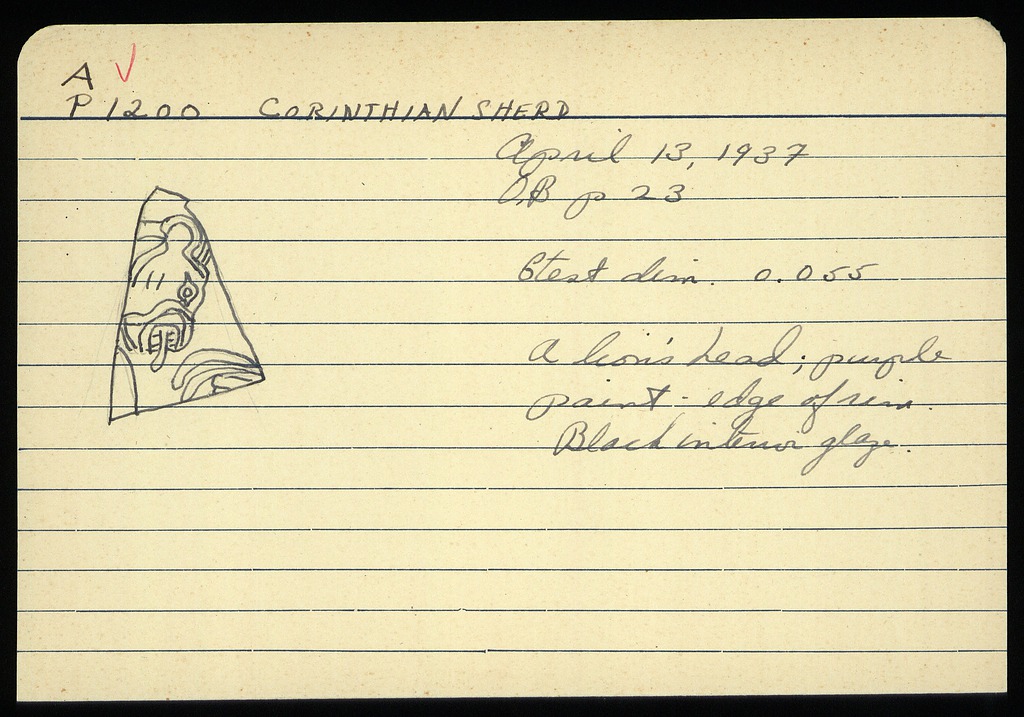 A ✓
P 1200 CORINTHIAN SHERD
April 13, 1937
O,B p 23
Gtest dim. 0.055
A lion's head; purple
paint - edge of rim.
Black interior glaze.